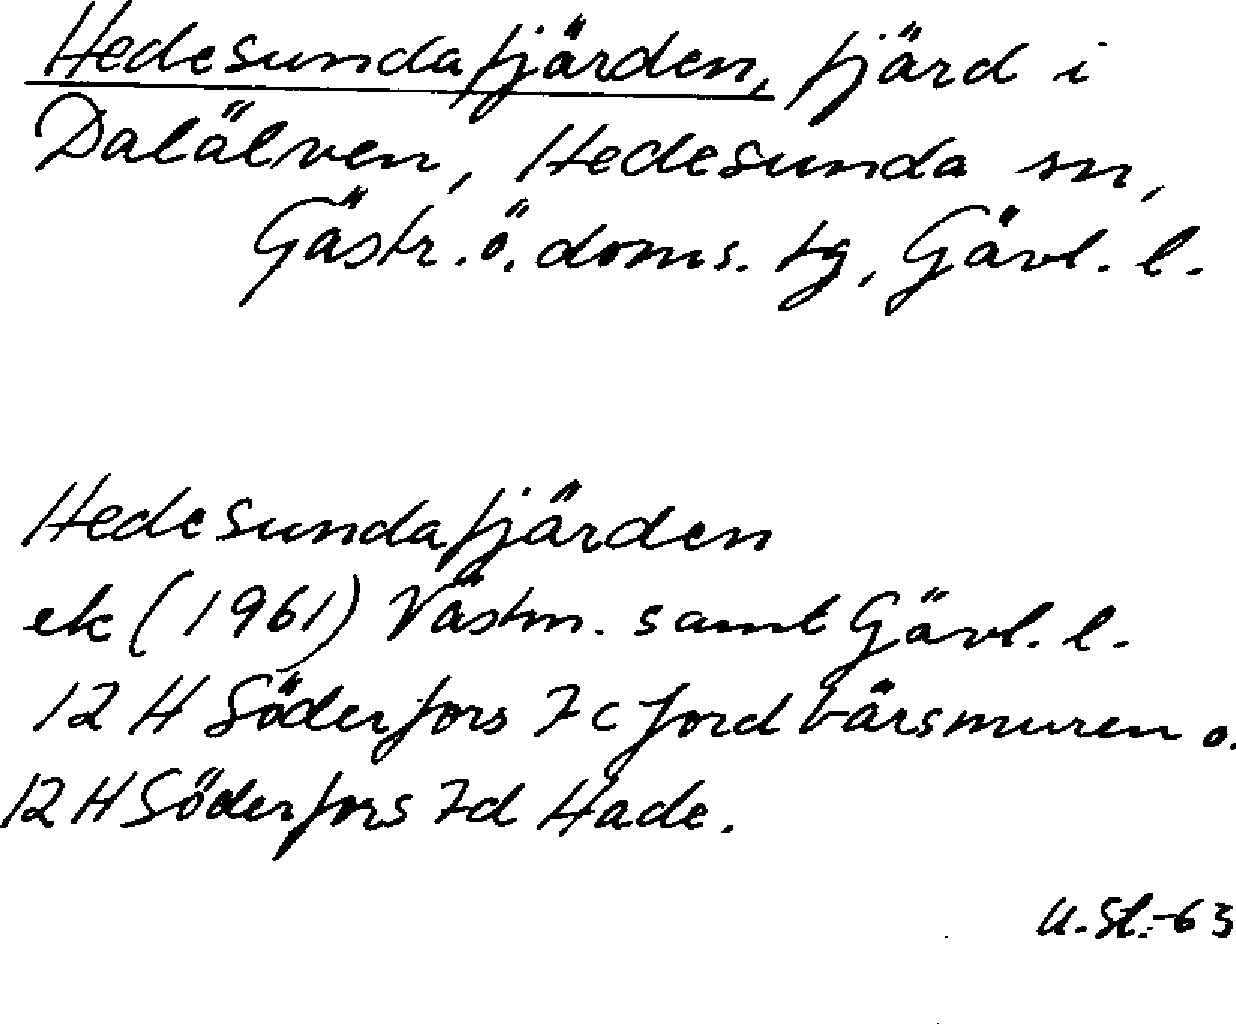 Hedesundafjärden, fjärd i
Dalälven, Hedesunda sn,
Gästr. ö. doms. tg, Gävl. l.
Hedesundafjärden
ek (1961) Västm. samt Gävl. l.
12 H Söderfors 7c Jordbärsmuren o.
12 H Söderfors 7d Hade.
U. St.-63